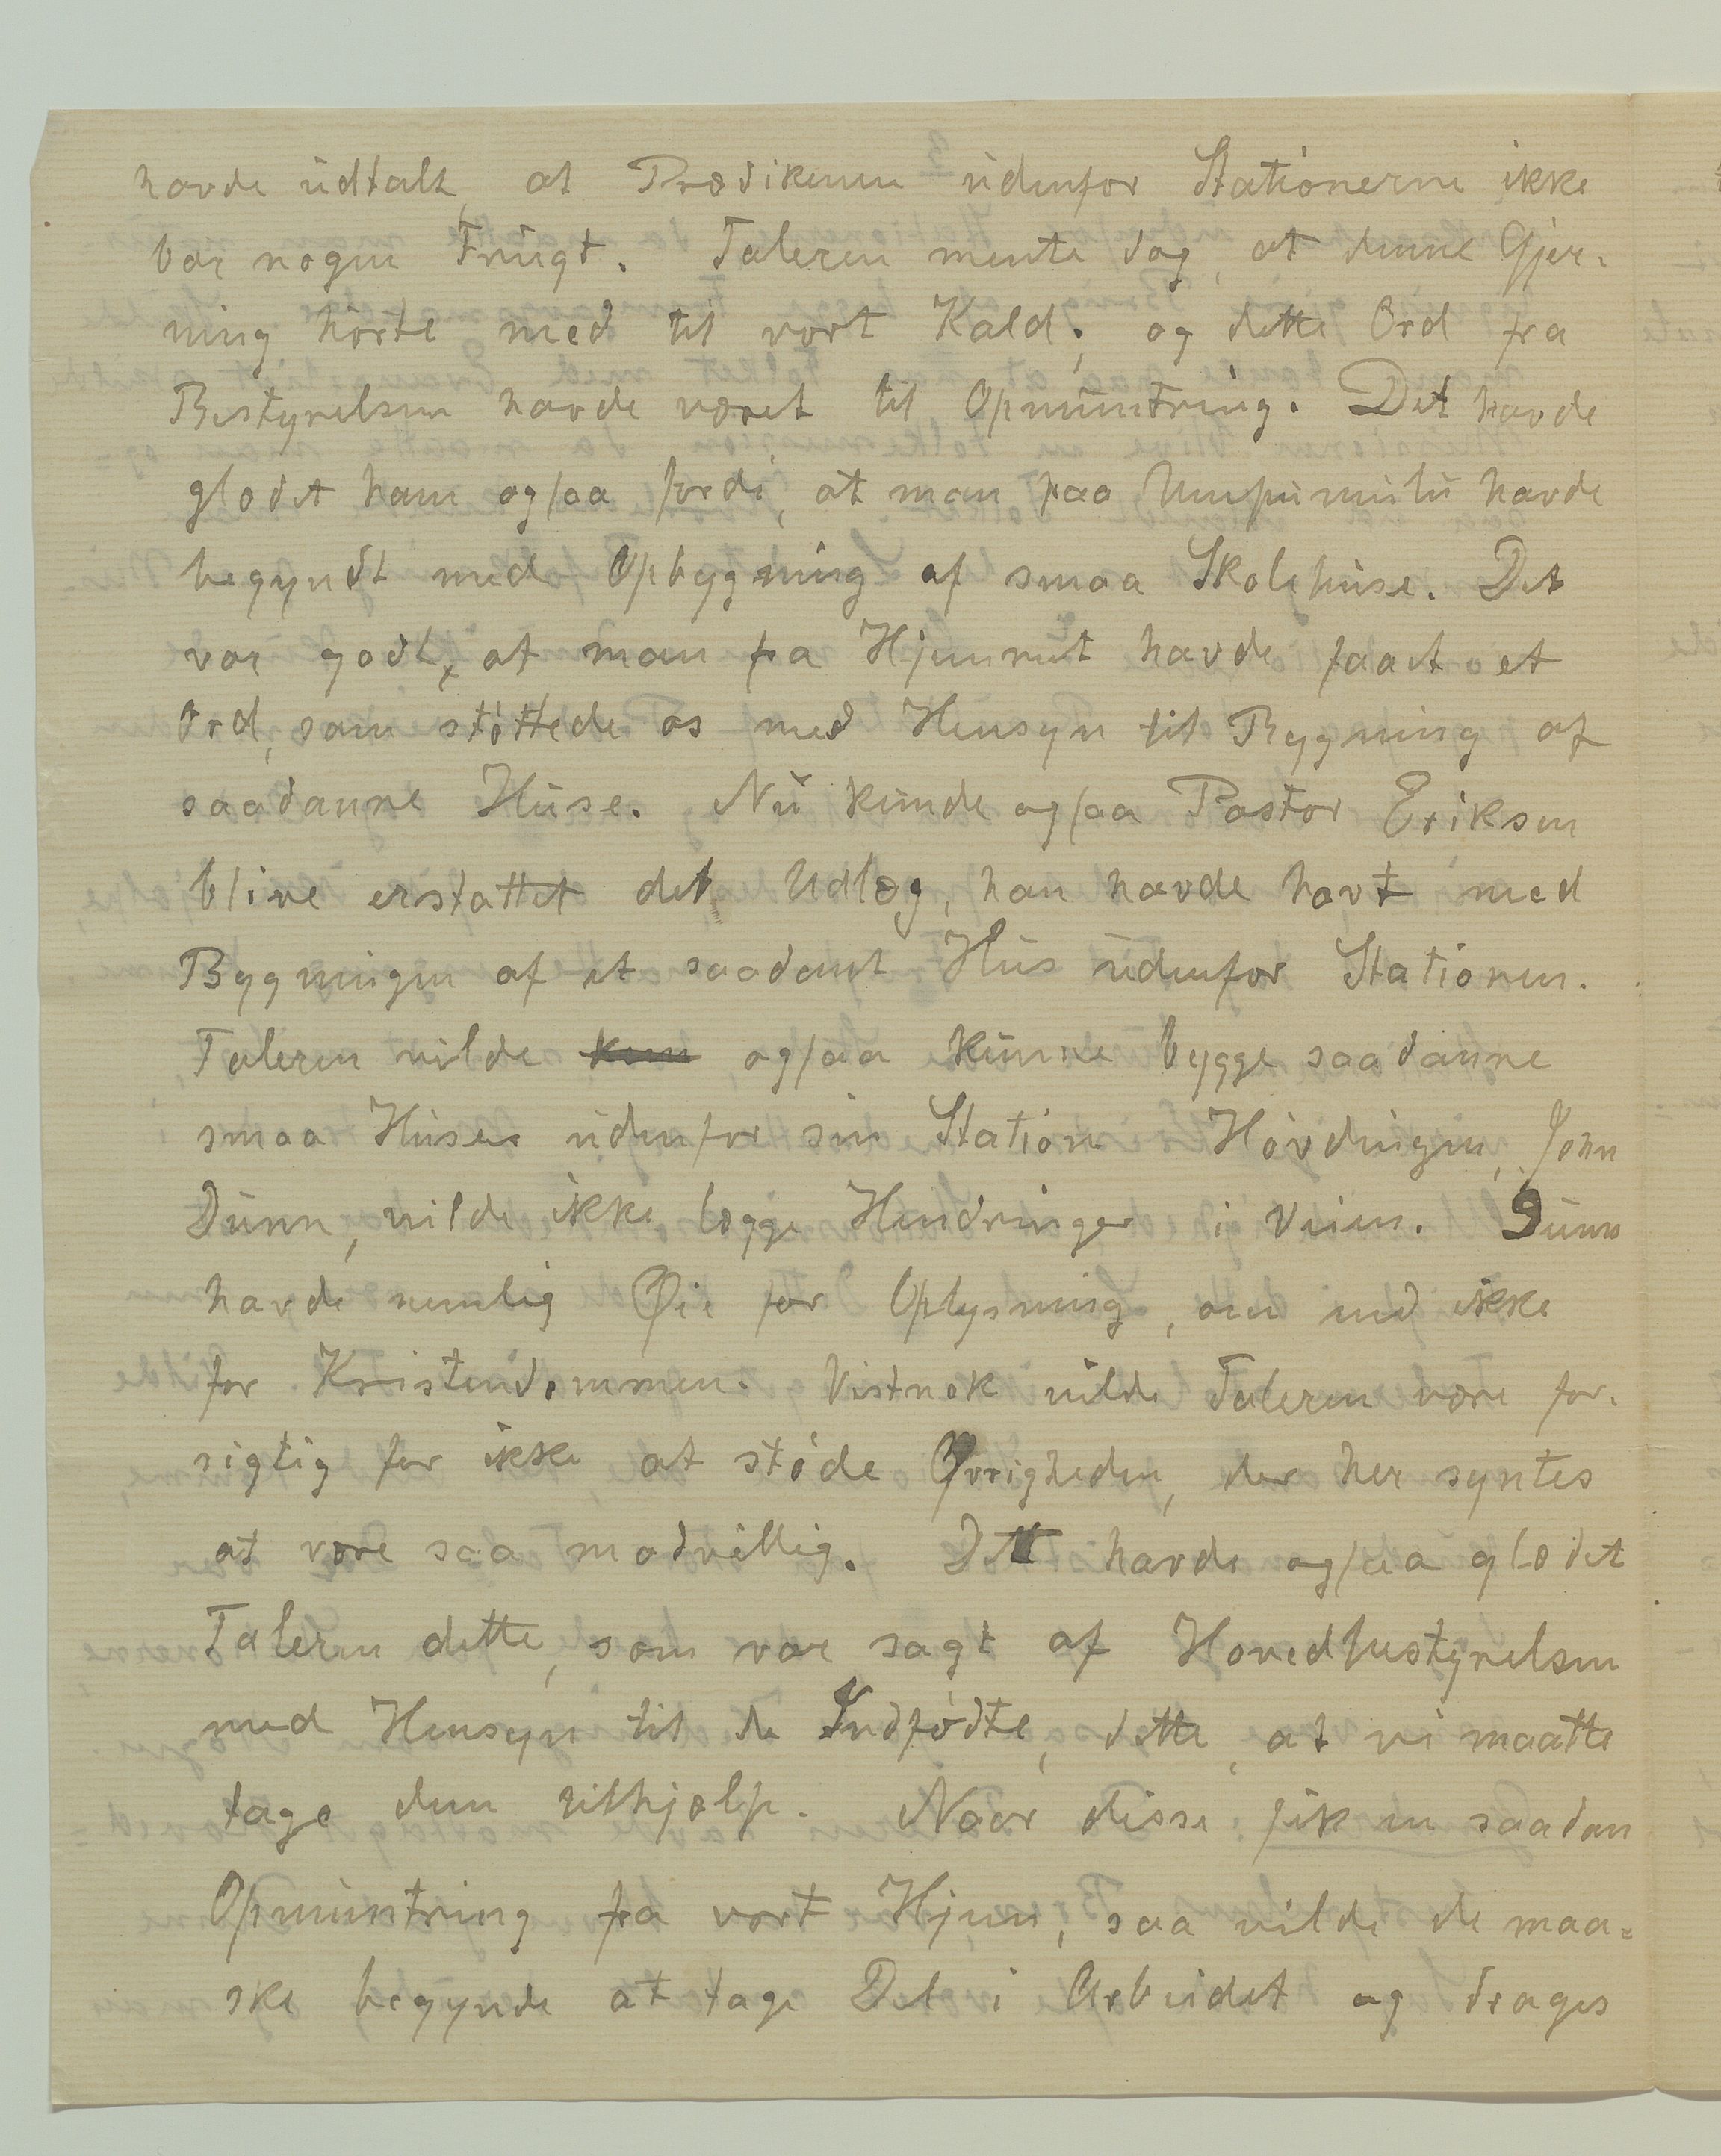 havde udtalt, at Prædikenen udenfor Stationerne ikke
bar nogen Frugt. Taleren mente dog, at denne Gjer-
ning hørte med til vort Kald; og dette Ord fra
Bestyrelsen havde været til Opmuntring. Det havde
glædet ham ogsaa fordi, at man paa Umpumulu havde
begyndt med Opbygning af smaa Skolehuse. Det
var godt, at man fra Hjemmet havde faaet et
Ord, som støttede os med Hensyn til Bygning af
saadanne Huse. Nu kunde ogsaa Pastor Eriksen
blive erstattet det Udlæg, han havde havt med
Bygningen af et saadant Hus udenfor Stationen.
Taleren vilde kun ogsaa kunne bygge saadanne
smaa Huse udenfor sin Station. Høvdingen, John
Dunn, vilde ikke lægge Hindringer i Veien. Dunn
havde nemlig Øie for Oplysning, om end ikke
for Kristendommen. Vistnok vilde Taleren være for-
sigtig for ikke at støde Øvrigheden, der her syntes
at være saa modvillig. Det havde ogsaa glædet
Taleren dette, som var sagt af Hovedbestyrelsen
med Hensyn til de Indfødte, dette, at vi maatte
tage dem tilhjælp. Naar disse fik en saadan
Opmuntring fra vort Hjem, saa vilde de maa-
ske begynde at tage Del i Arbeidet og drages